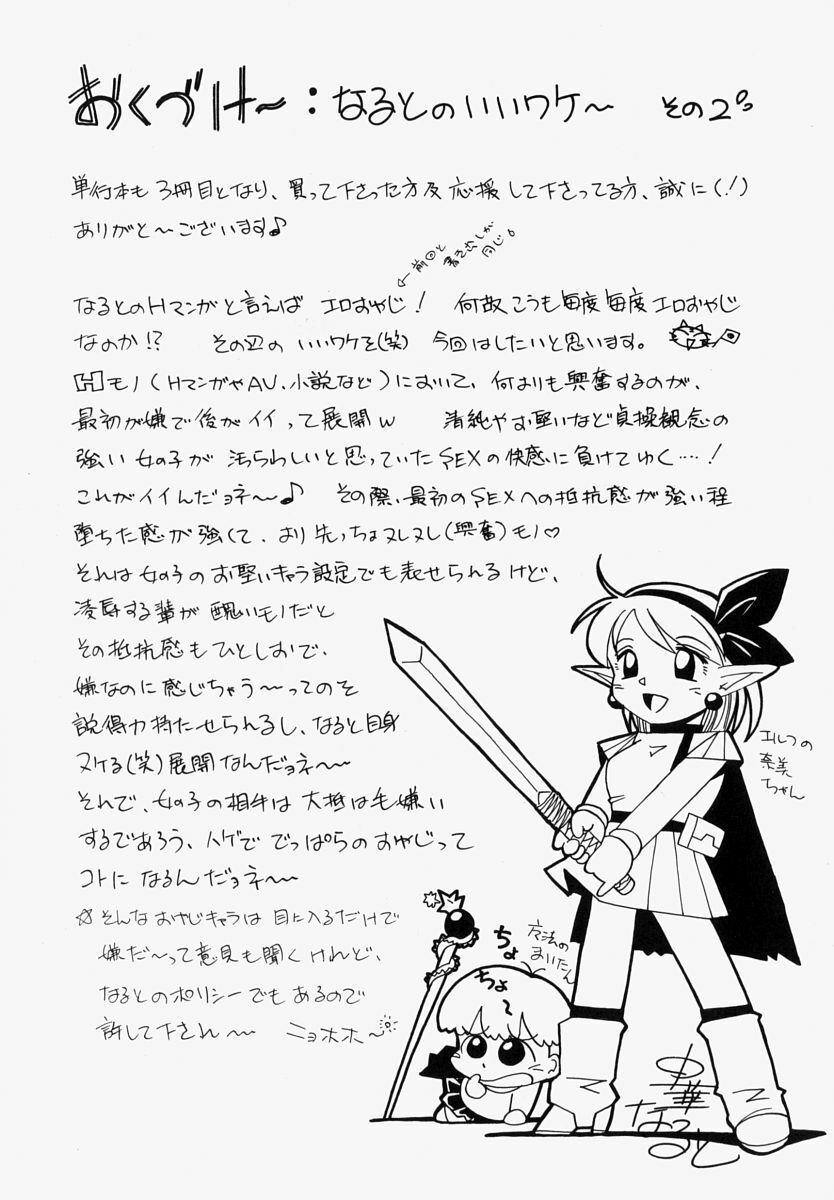 おくづけ～：なるとのいいワケ～ その2
単行本も3冊目となり、買って下さった方及応援して下さってる方、誠に(！)
ありがと～ございます♪
←前回と
書き出しが
同じ。
なるとのHマンガと言えば エロおやじ！ 何故こうも毎度毎度エロおやじ
なのか!? その辺のいいワケを(笑) 今回はしたいと思います。
Hモノ(HマンガやAV、小説など)において、何よりも興奮するのが、
最初が嫌で後がイイって展開w 清純やお堅いなど貞操観念の
強い女の子が 汚らわしいと思っていたSEXの快感に負けてゆく…！
これがイイんだョネ～♪ その際、最初のSEXへの抵抗感が強い程
堕ちた感が強くて、より先っちょヌレヌレ(興奮)モノ♡
それは女の子のお堅いキャラ設定でも表せられるけど、
凌辱する輩が醜いモノだと
その抵抗感もひとしおで、
嫌なのに感じちゃう～ってのを
説得力持たせられるし、なると自身
ヌケる(笑)展開なんだョネ～
それで、女の子の相手は大抵は毛嫌い
するであろう、ハゲで でっぱらのおやじって
コトになるんだョネ～
☆そんなおやじキャラは目に入るだけで
嫌だ～って意見も聞くけれど、
なるとのポリシーでもあるので
許して下され～ ニョホホ～
エルフの
奈美
ちゃん
ちょ
ちょ～
魔法の
まいたん
中華
なると